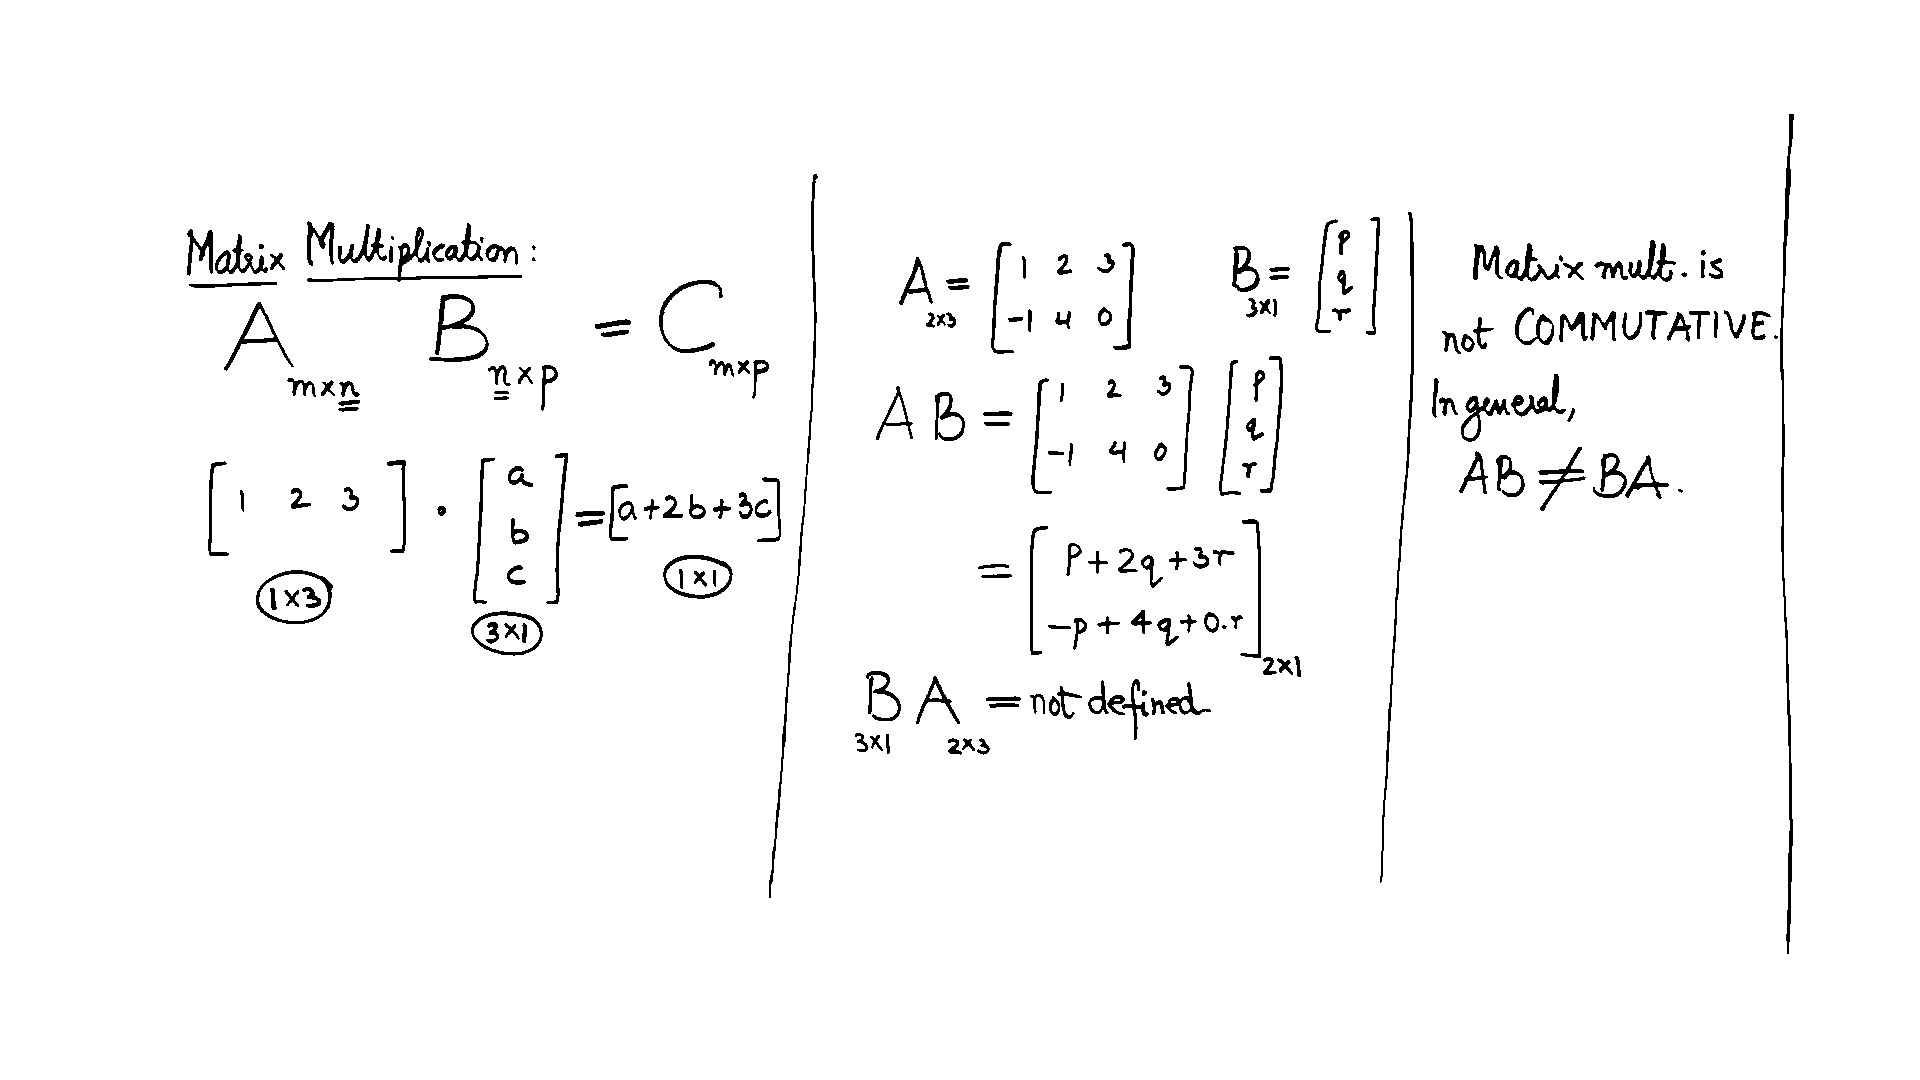 Matrix Multiplication:
A m×n B n×p = C m×p
[1 2 3] · [a b c] = [a+2b+3c]
1×3 3×1 1×1
A 2×3 = [1 2 3
-1 4 0] B 3×1 = [p q r]
AB = [1 2 3
-1 4 0] [p q r]
= [p+2q+3r
-p+4q+0.r] 2×1
B 3×1 A 2×3 = not defined
Matrix mult. is
not COMMUTATIVE.
In general,
AB ≠ BA.